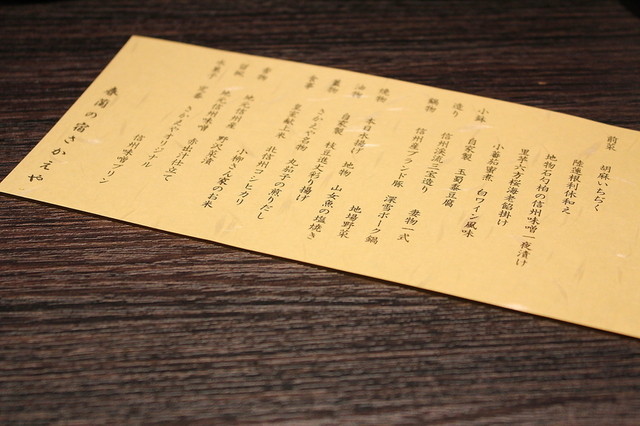 前菜 胡麻いちぢく
陸蓮根利休和え
地物石もろ柏の信州味噌一夜漬け
里芋六方桜海老餡掛け
小鉢 小蕃茄蜜煮 白ワイン風味
造り 自家製 玉蜀黍豆腐
信州渓流三宝造り 妻物一式
鍋物 信州産ブランド豚 深雪ポーク鍋
地場野菜
焼物 本日水揚げ 地物 山女魚の塩焼き
油物 自家製 枝豆進丈彩り揚げ
蓋物 さかえや名物 丸茄子の煎りだし
食事 皇室献上米 北信州コシヒカリ
小柳さん家のお米
香物 地元信州産 野沢菜漬
留椀 地元信州味噌 赤出汁仕立て
水菓子 定番 さかえやオリジナル
信州味噌プリン
春蘭の宿さかえや